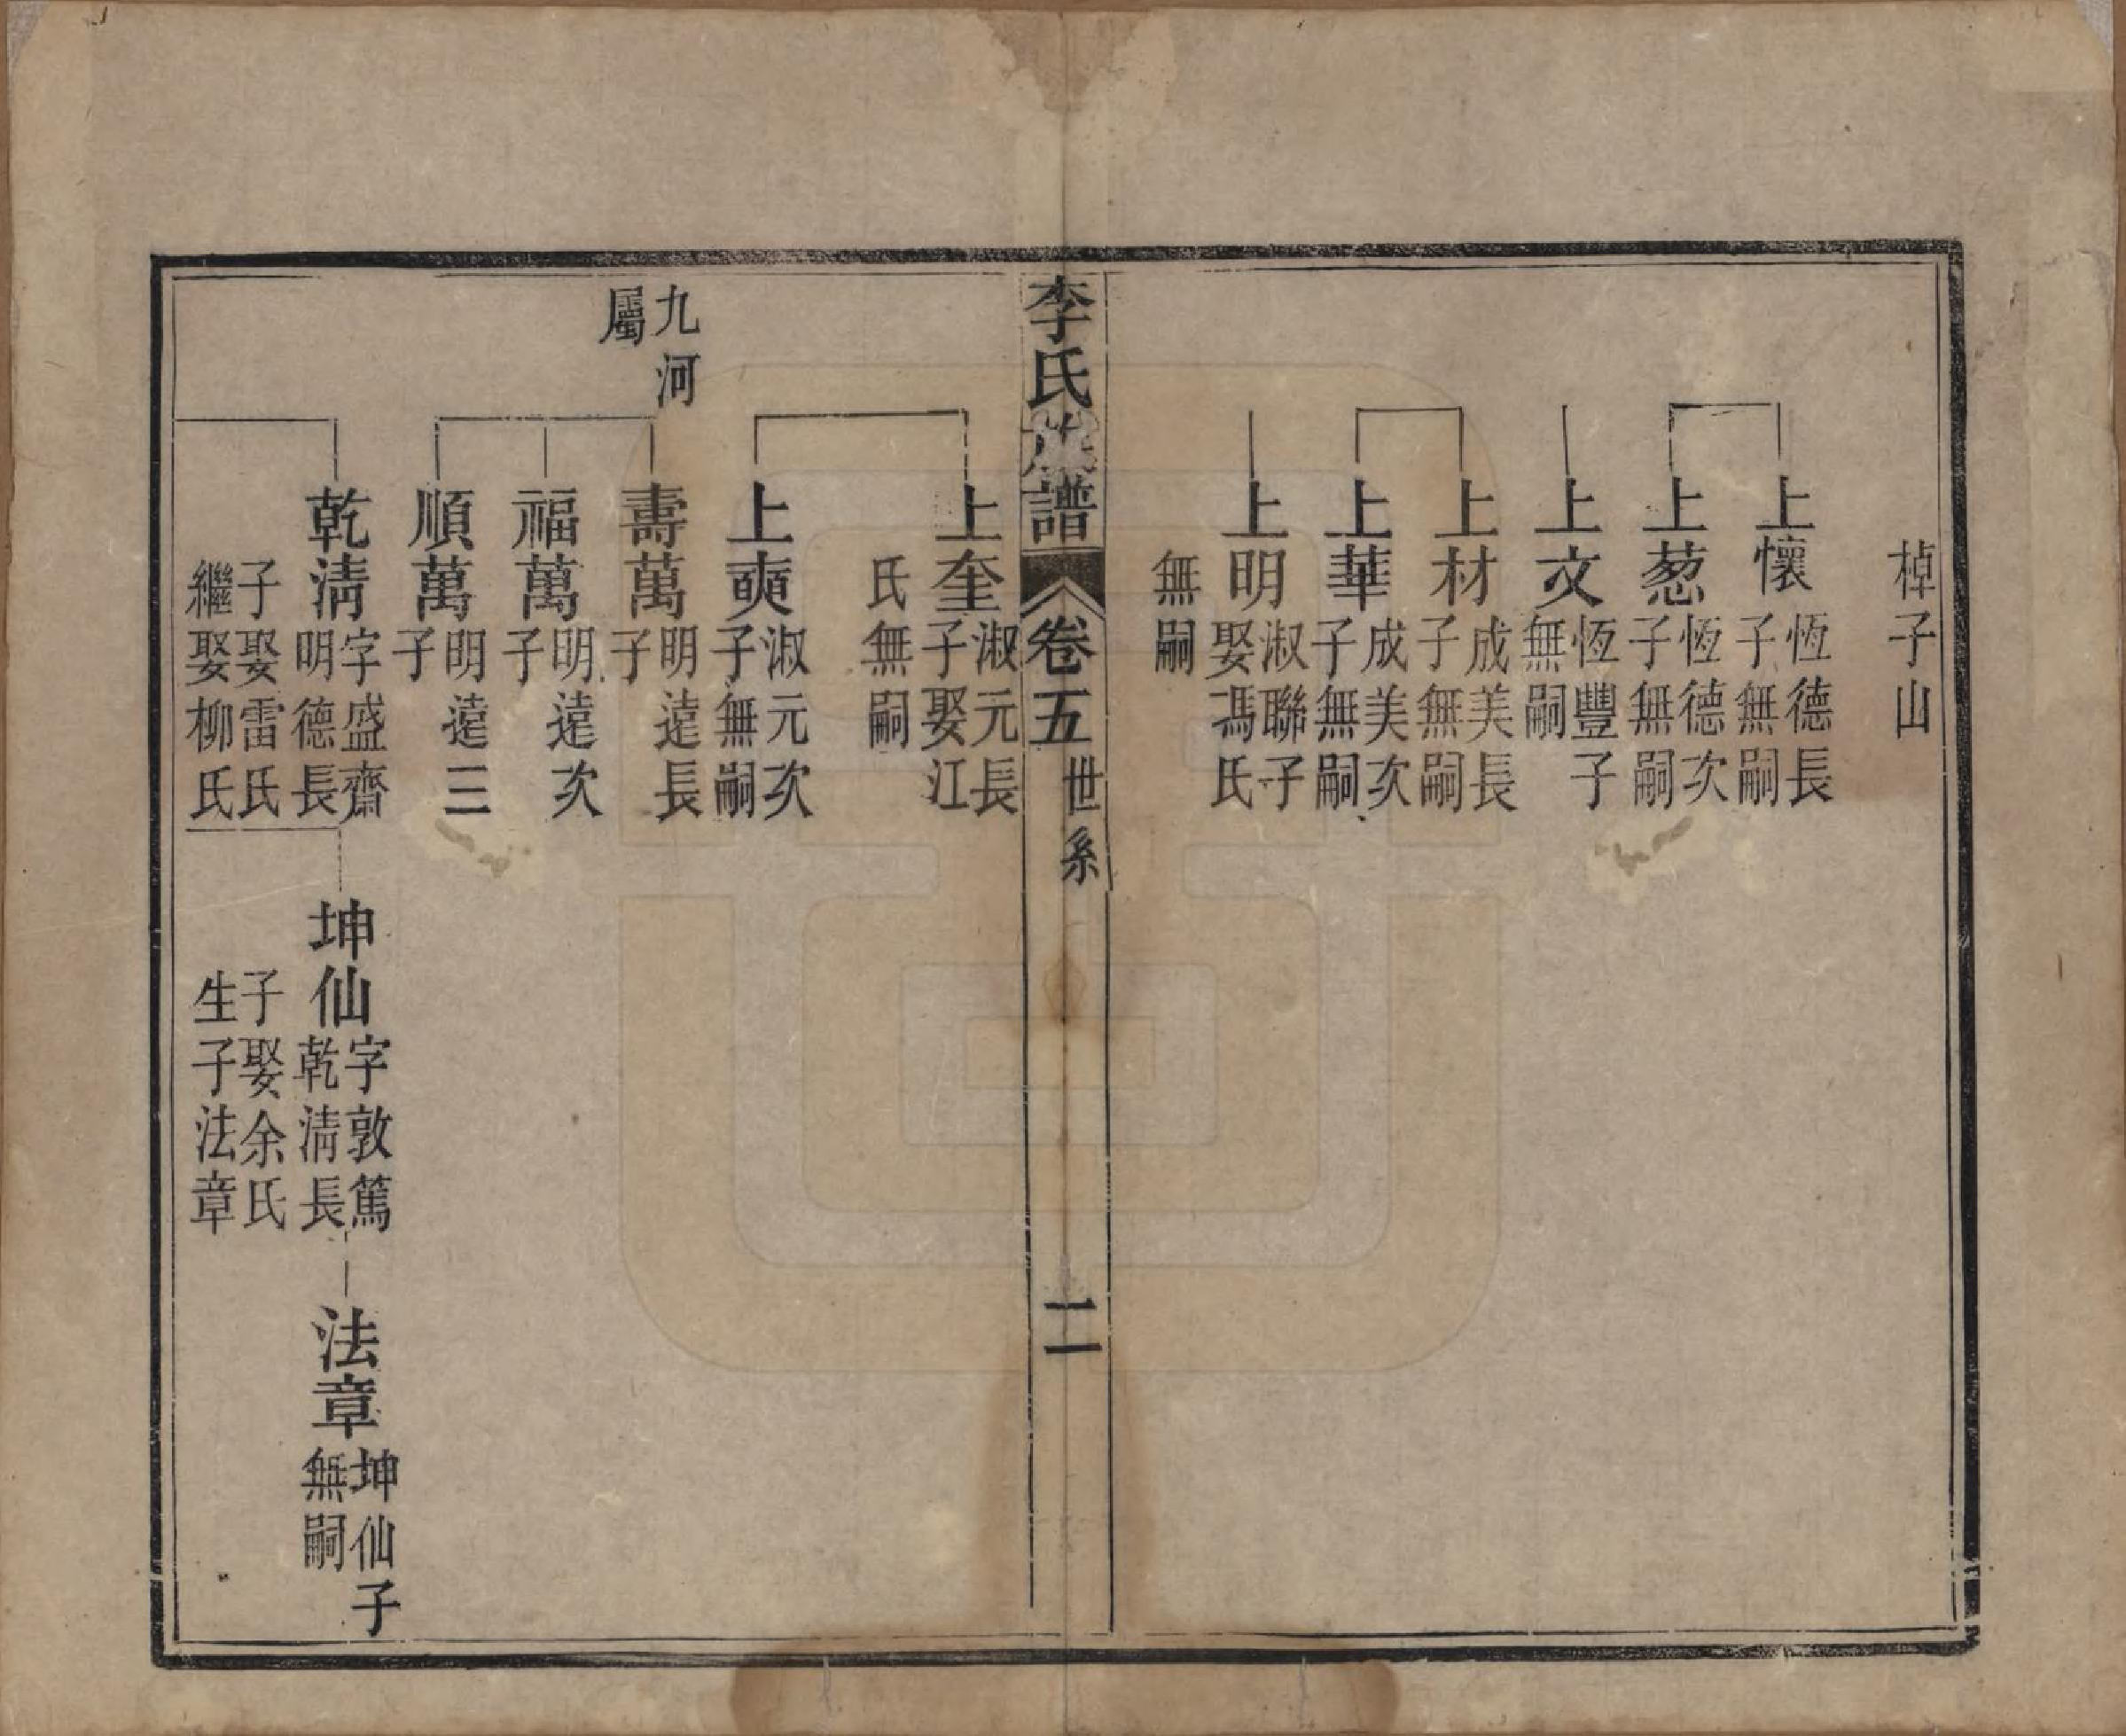 棹子山
上懷 恆德長子無嗣
上葱 恆德次子無嗣
上文 恆豐子無嗣
上材 成美長子無嗣
上華 成美次子無嗣
上明 淑聯子娶馮氏無嗣
李氏族譜 卷五 世系 二
上奎 淑元長子娶江氏無嗣
上奭 淑元次子無嗣
九河屬
壽萬 明遠長子
福萬 明遠次子
順萬 明遠三子
乾淸 字盛齋明德長子娶雷氏繼娶柳氏
坤仙 字敦篤乾淸長子娶余氏生子法章
法章 坤仙子無嗣